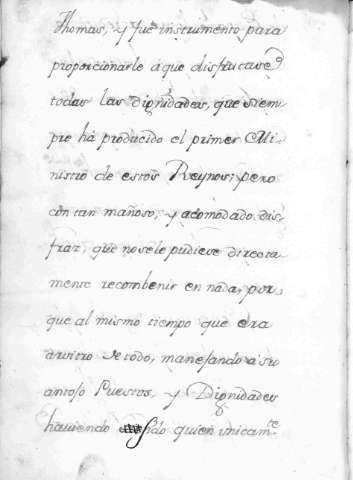 Thomas, y fue instrumento para
proporcionarle à que disfrutase
todas las dignidades, que siem
pre há producido el primer Mi-
nistro de estos Reynos; pero
con tan mañoso, y acomodado dis-
fraz, que no sele pudiese directa
mente recombenir en nada, por-
que al mismo tiempo que era
arvitro de todo, manejando a su
antojo Puestos, y Dignidades
haviendo sido quien unicam.te